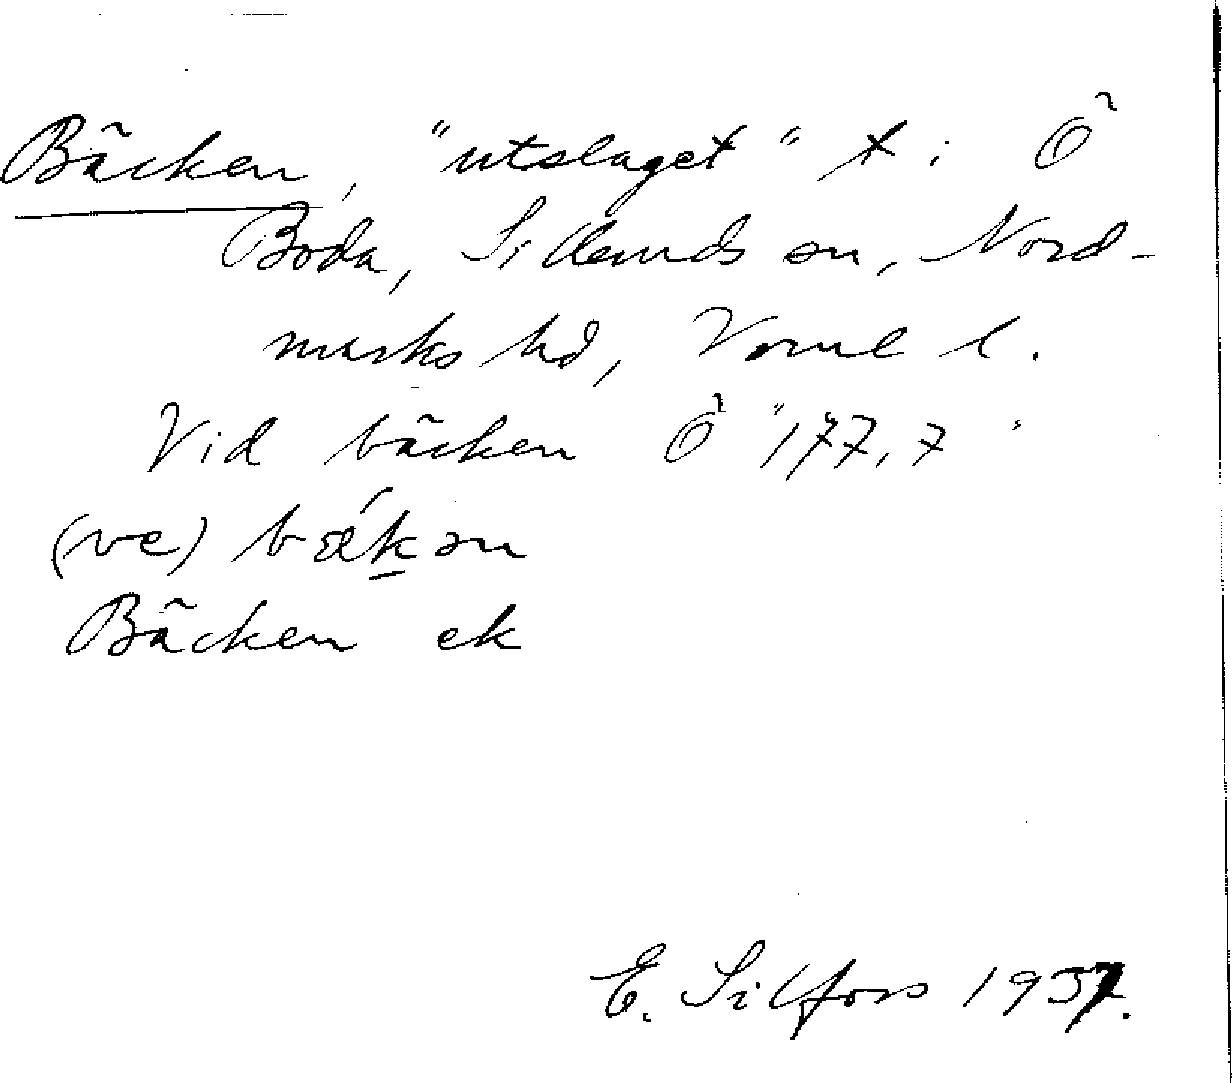 Bäcken, "utslaget" t i Ö
Boda, Silleruds sn, Nord-
marks hd, Vrml l.
Vid bäcken Ö "177,7"
(ve) bǽk̠ən
Bäcken ek
E. Silfors 1957.